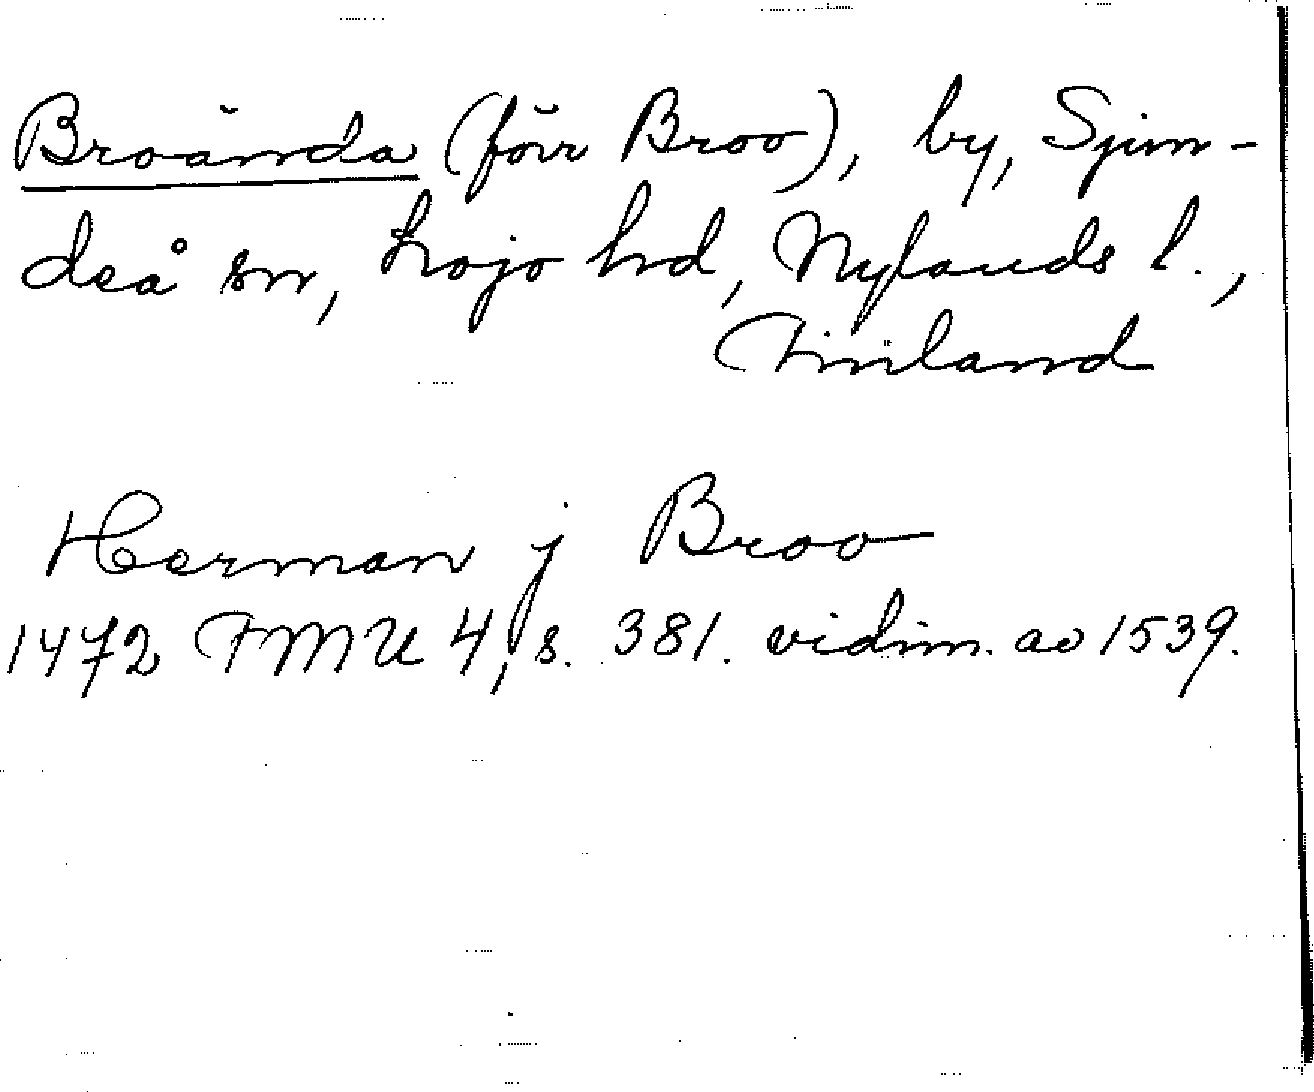 Broända (förr Broo), by, Sjun-
deå sn, Lojo hd, Nylands l.,
Finland
Herman j Broo
1472 FMU 4, s. 381. vidim. av 1539.